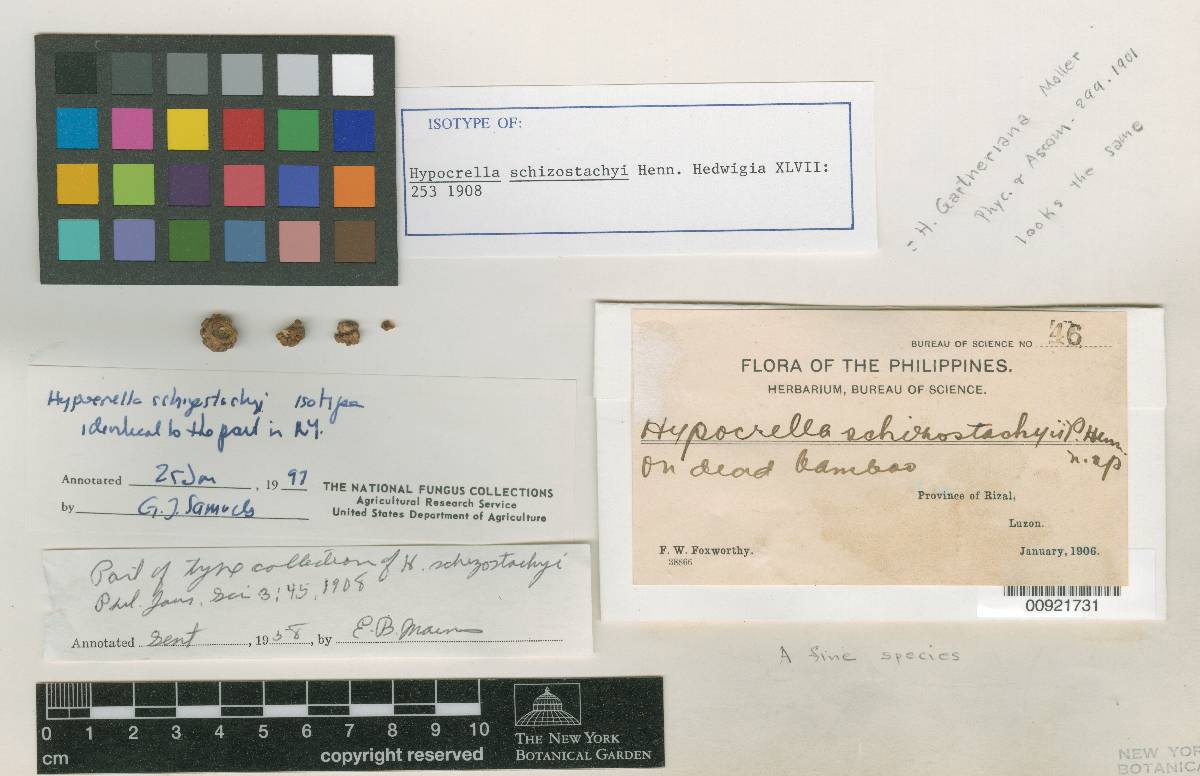 ISOTYPE OF:
Hypocrella schizostachyi Henn. Hedwigia XLVII:
253 1908
= H. Gartneriana Moller
Phyc. & Ascom. 299. 1901
looks the same
BUREAU OF SCIENCE NO 46
FLORA OF THE PHILIPPINES.
HERBARIUM, BUREAU OF SCIENCE.
Hypocrella schizostachyi P. Henn.
n. sp
on dead bamboo
Province of Rizal,
Luzon.
F. W. Foxworthy.
January, 1906.
38866
00921731
A fine species
Hypocrella schizostachyi isotype
identical to the part in NY.
Annotated 25 Jan, 1997
by G. J. Samuels
THE NATIONAL FUNGUS COLLECTIONS
Agricultural Research Service
United States Department of Agriculture
Part of type collection of H. schizostachyi
Phil. Jour. Sci 3:45, 1908
Annotated Sent, 1958, by E. B. Mains
0 1 2 3 4 5 6 7 8 9 10
cm
copyright reserved
THE NEW YORK
BOTANICAL GARDEN
NEW YOR
BOTANICA